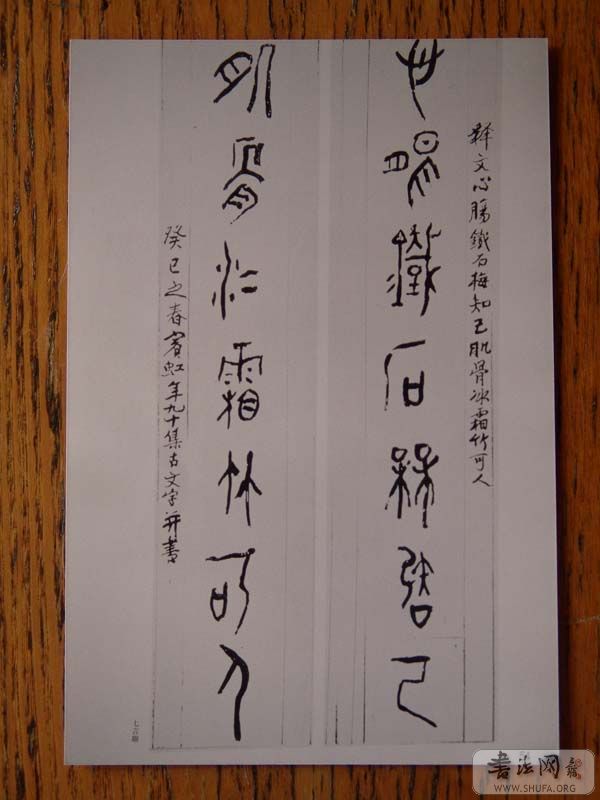 釋文心腸鐵石梅知己肌骨冰霜竹可人
心腸鐵石梅知己
肌骨冰霜竹可人
癸巳之春賓虹年九十集古文字并書
七言聯
書法网
WWW.SHUFA.ORG